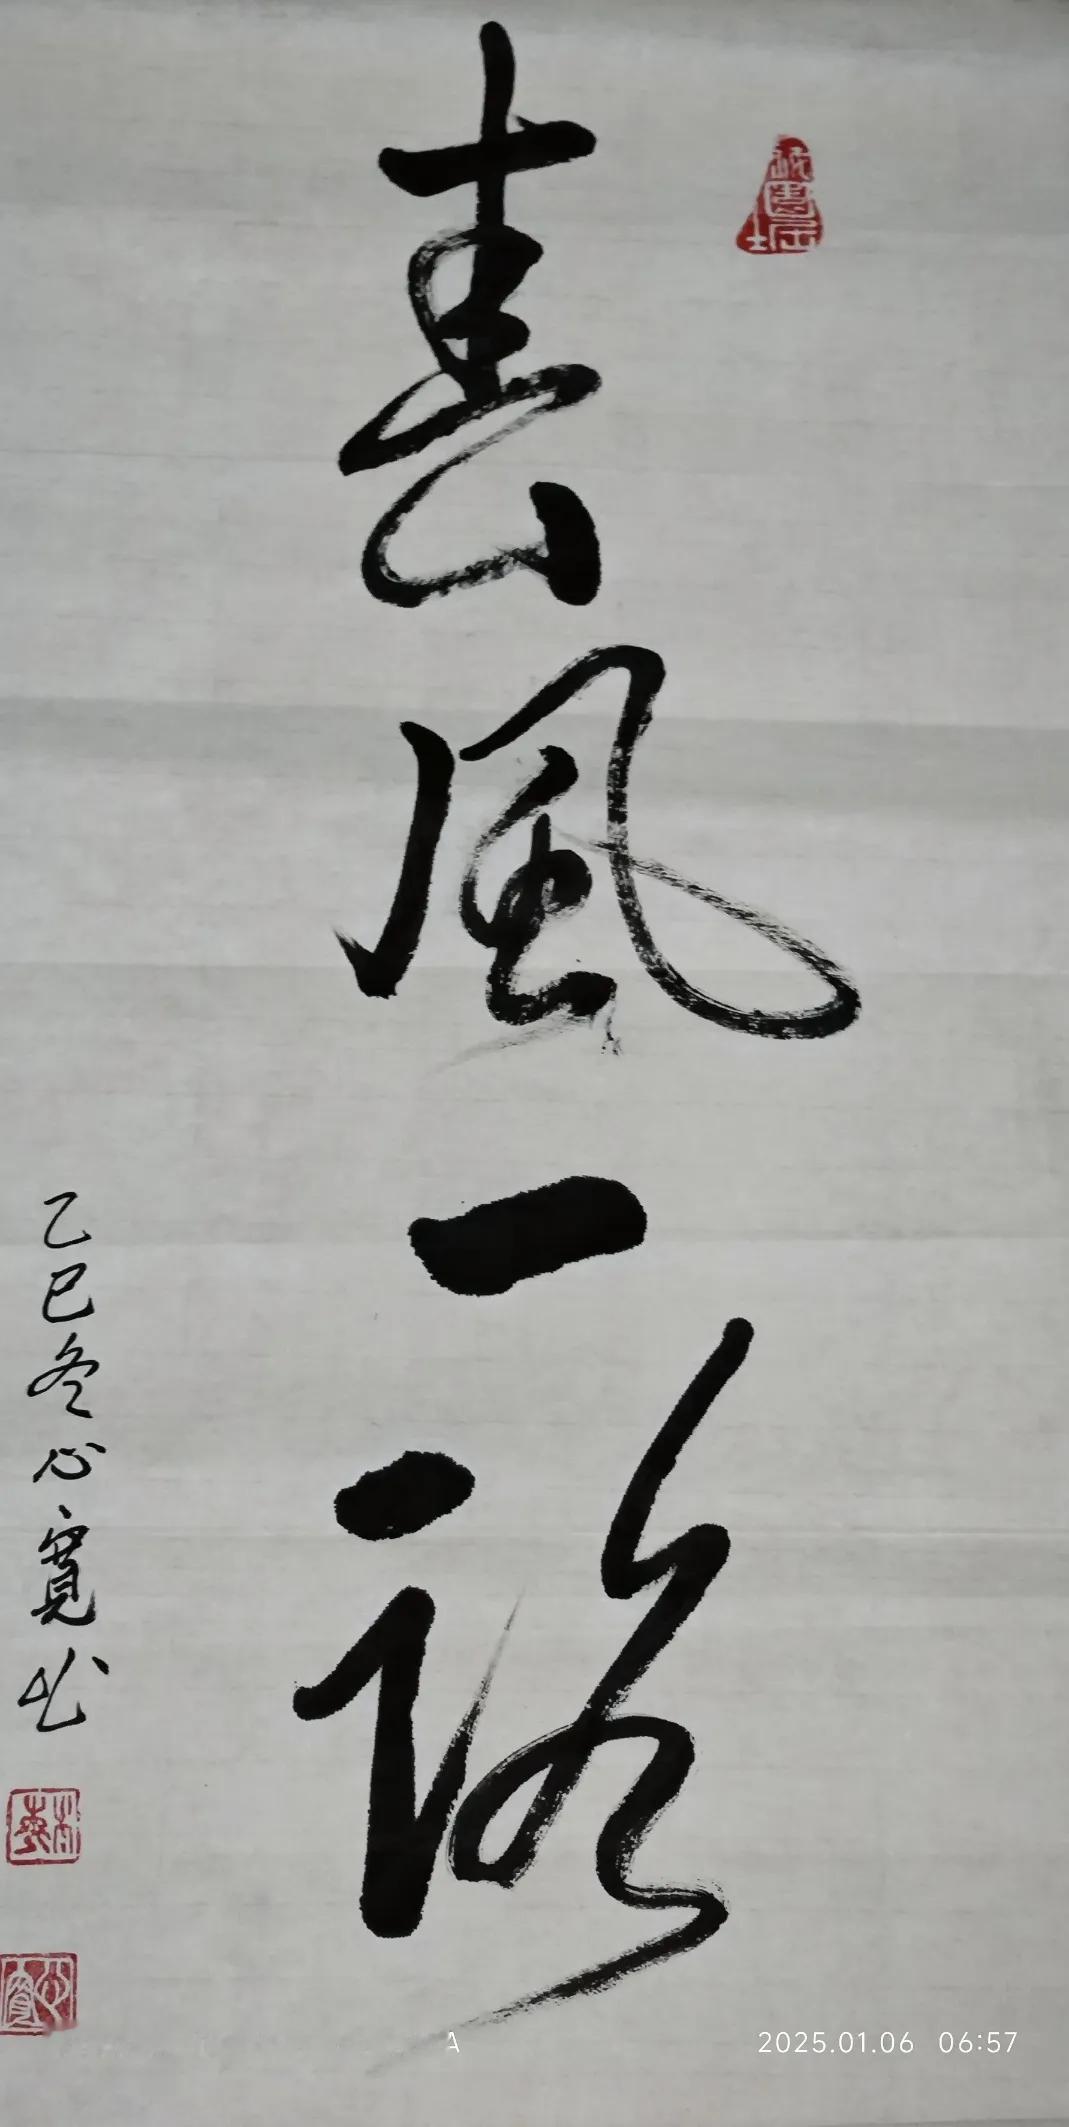 春風一路
乙巳冬心寬书
心寬
2025.01.06 06:57